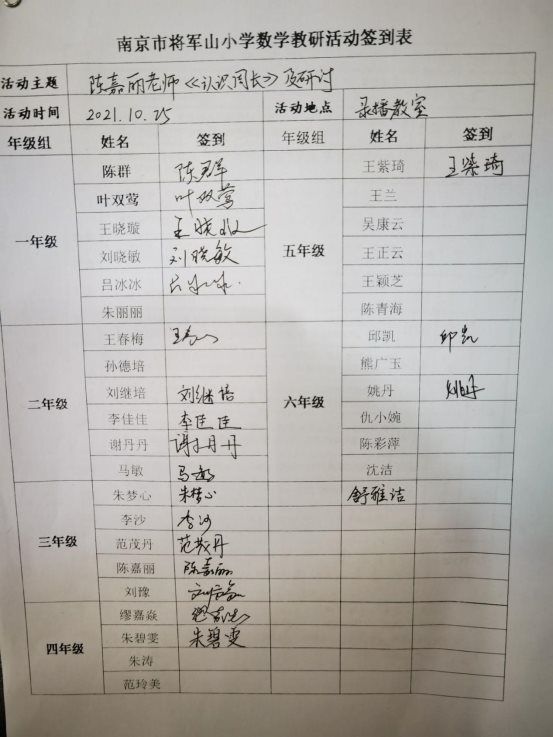 南京市将军山小学数学教研活动签到表
活动主题 陈嘉丽老师《认识周长》及研讨
活动时间 2021.10.25 活动地点 录播教室
年级组 姓名 签到 年级组 姓名 签到
一年级
陈群 陈群
叶双莺 叶双莺
王晓璇
刘晓敏 刘晓敏
吕冰冰 吕冰冰
朱丽丽
五年级
王紫琦 王紫琦
王兰
吴康云
王正云
王颖芝
陈青海
二年级
王春梅
孙德培
刘继培 刘继培
李佳佳 李佳佳
谢丹丹 谢丹丹
马敏 马敏
六年级
邱凯 邱凯
熊广玉
姚丹 姚丹
仇小婉
陈彩萍
沈洁
三年级
朱梦心 朱梦心
李沙 李沙
范茂丹 范茂丹
陈嘉丽 陈嘉丽
刘豫
舒雅洁
四年级
缪嘉焱
朱碧雯 朱碧雯
朱涛
范玲美